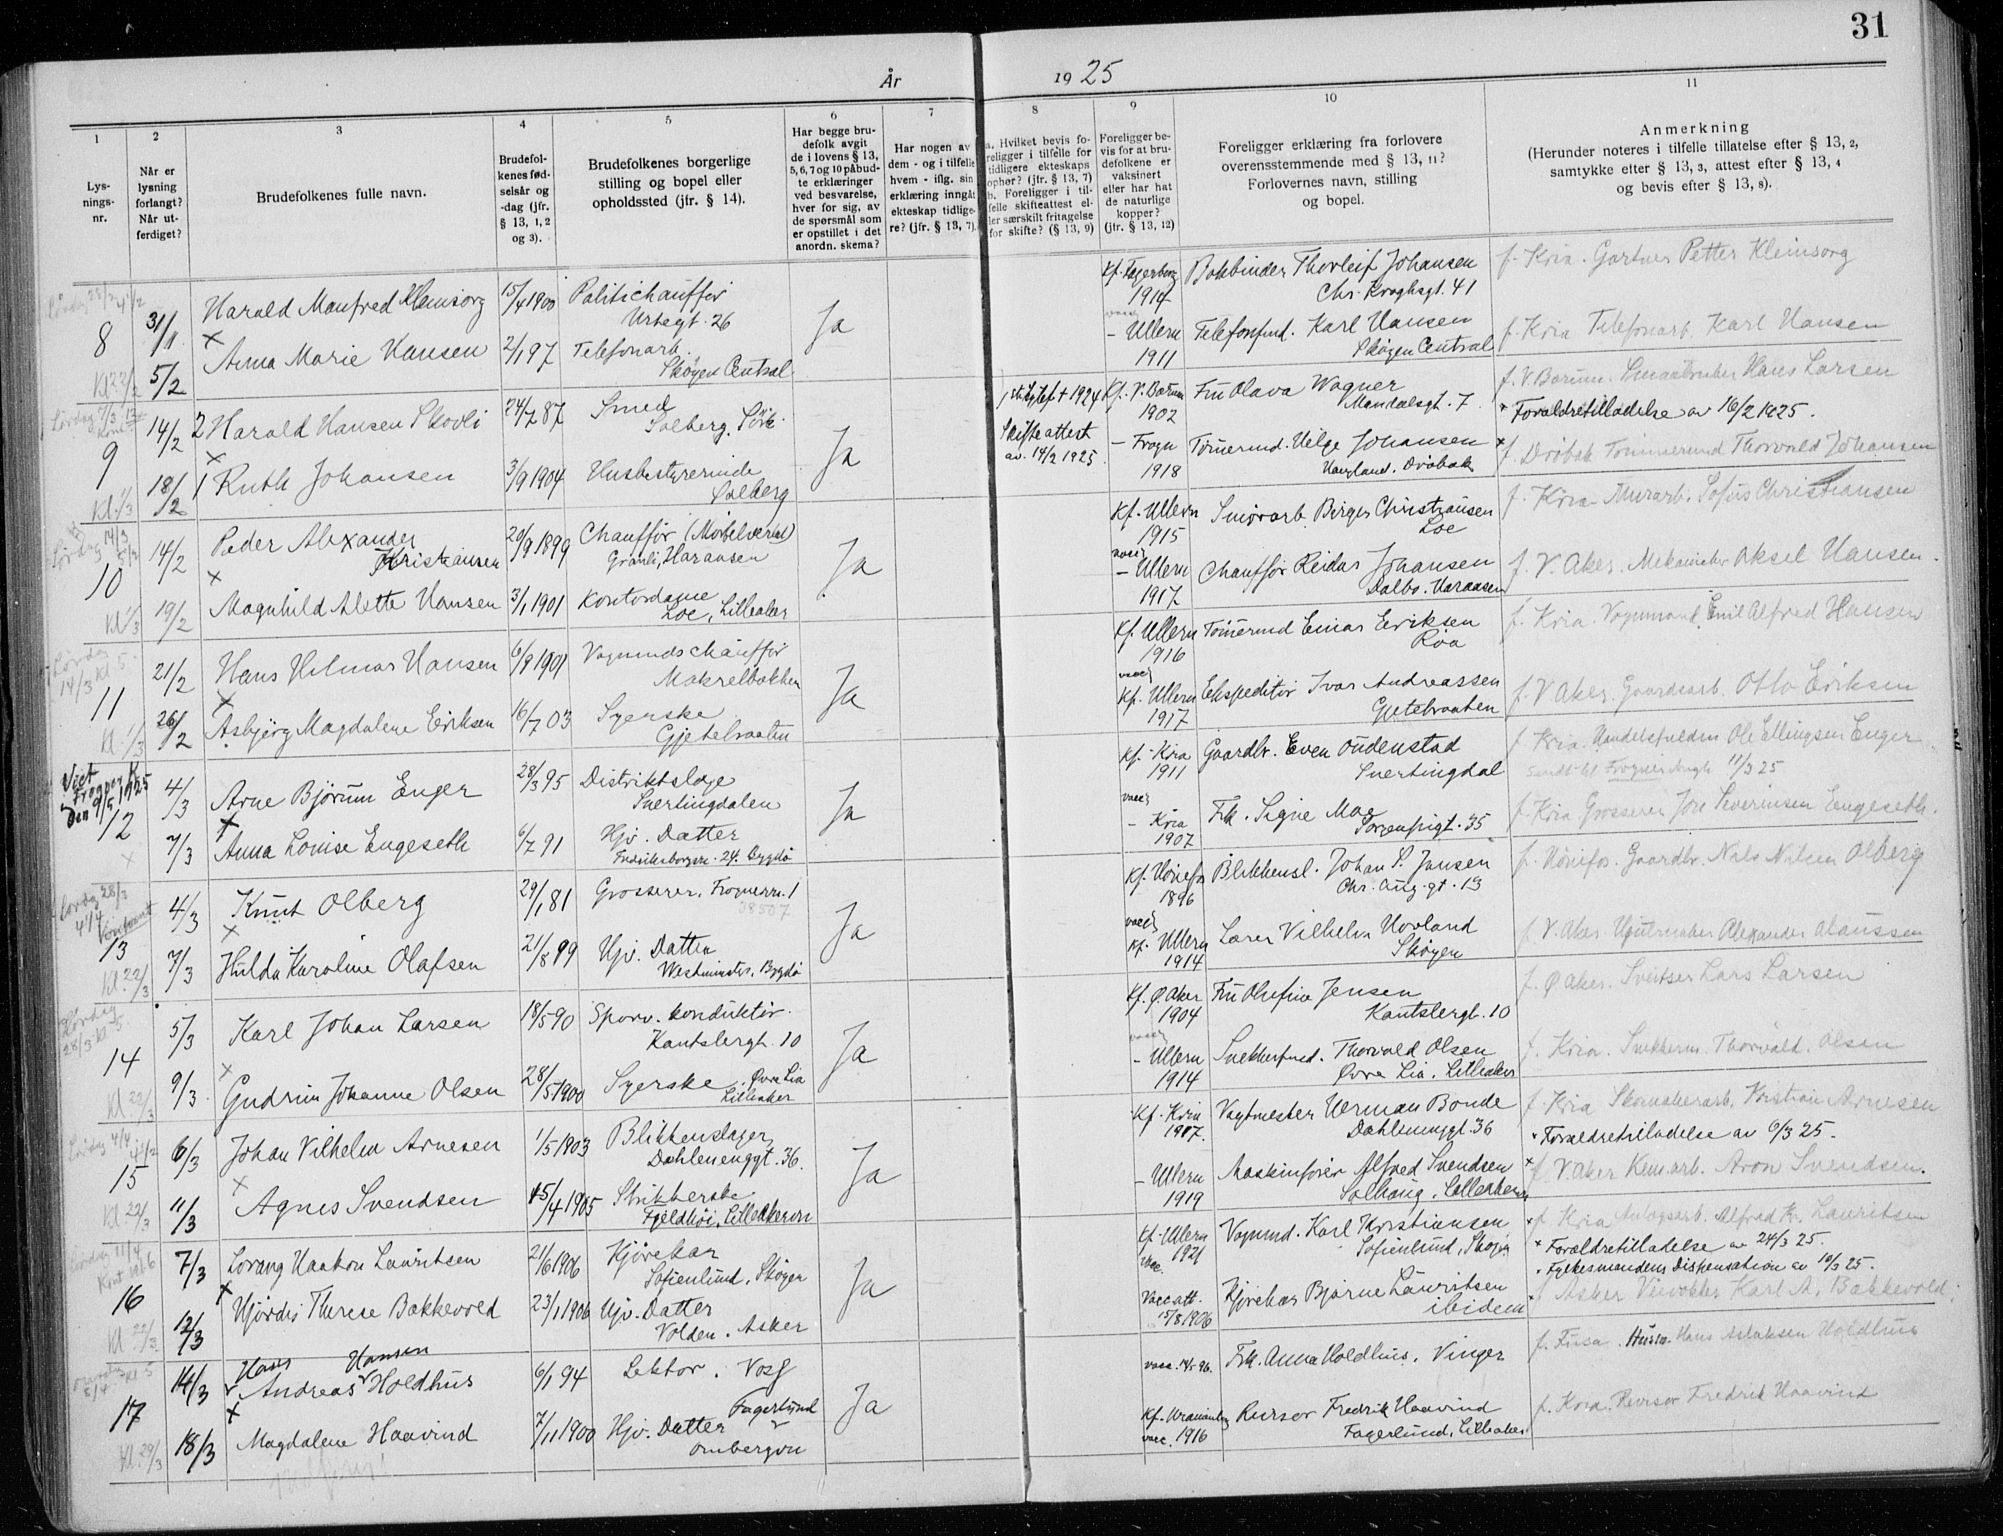 31
År 1925
1 2 3 4 5 6 7 8 9 10 11
Lys-
nings-
nr.
Når er
lysning
forlangt?
Når ut-
ferdiget?
Brudefolkenes fulle navn.
Brudefol-
kenes fød-
selsår og
-dag (jfr.
§ 13, 1, 2
og 3).
Brudefolkenes borgerlige
stilling og bopel eller
opholdssted (jfr. § 14).
Har begge bru-
defolk avgit
de i lovens § 13,
5, 6, 7 og 10 påbud-
te erklæringer
ved besvarelse,
hver for sig, av
de spørsmål som
er opstillet i det
anordn. skema?
Har nogen av
dem - og i tilfelle
hvem - iflg. sin
erklæring inngåt
ekteskap tidlige-
re? (jfr. § 13, 7).
a. Hvilket bevis fo-
religger i tilfelle for
tidligere ekteskaps
ophør? (jfr. § 13, 7)
b. Foreligger i til-
felle skifteattest el-
ler særskilt fritagelse
for skifte? (§ 13, 9)
Foreligger be-
vis for at bru-
defolkene er
vaksinert
eller har hat
de naturlige
kopper?
(jfr. § 13, 12)
Foreligger erklæring fra forlovere
overensstemmende med § 13, 11?
Forlovernes navn, stilling
og bopel.
Anmerkning
(Herunder noteres i tilfelle tillatelse efter § 13, 2,
samtykke efter § 13, 3, attest efter § 13, 4
og bevis efter § 13, 8).
8 31/1 Harald Manfred Kleinsorg 15/4 1900 Politichauffør Ja Kf. Fagerborg Bokbinder Thorleif Johansen f. Kria. Gartner Petter Kleinsorg
Urtegt. 26 1914 Chr. Kroghsgt. 41
5/2 Anna Marie Hansen 2/1 97 Telefonarb. - Ullern Telefonfmd. Karl Hansen f. Kria Telefonarb. Karl Hansen
Skøyen Central 1911 Skøyen Central
9 14/2 2 Harald Hansen Skovli 24/7 87 Smed Ja Kf. V. Bærum Fru Olava Wagner f. V Bærum. Smaabruker Hans Larsen
Solberg 1902 Mandalsgt. 7. Forældretilladelse av 16/2 1925.
18/2 1 Ruth Johansen 3/9 1904 Husbestyrerinde Skifteattest av. 14/2 1925 - Frogn Tømermd. Helge Johansen f. Drøbak Tømmermd Thorvald Johansen
Solberg 1918 Drøbak
10 14/2 Peder Alexander 20/9 1899 Chauffør Ja Kf. Ullern Birger Christiansen f. Kria Murarb. Sofus Christiansen
Kristiansen Granli, Haraasen 1915 Loe
19/2 Magnhild Alette Hansen 3/1 1901 Kontordame - Ullern Chauffør Reidar Johansen f. V. Aker. Mekaniker Aksel Hansen.
Loe, Lilleaker 1917 Dalbo. Haraasen
11 21/2 Hans Hilmar Hansen 6/8 1901 Vognmdschauffør Ja Kf. Ullern Tømermd Einar Eriksen f. Kria. Vognmand Emil Alfred Hansen
Makrelbekken 1916 Røa
26/2 Asbjørg Magdalene Eriksen 16/7 03 Syerske Kf. Ullern Ekspeditør Ivar Andreassen f. V Aker. Gaardsarb. Otto Eriksen
Gjetebraaten 1917 Gjetebraaten
Viet
Frogner K.
den 9/5 1925
12 4/3 Arne Bjørum Enger 28/3 95 Distriktslæge Ja Kf. Kria Gaardbr. Even Oudenstad f. Kria. Ole Ellingsen Enger
Snertingdalen 1911 Snertingdal 11/3 25
7/3 Anna Louise Engeseth 6/7 91 Hjv. Datter - Kria Frk. Signe Moe f. Kria Grosserer Severinsen Engeseth.
24. Bygdø 1907 Sorgenfrigt. 35
13 4/3 Knut Olberg 29/1 81 Grosserer, Frognerv. 1 Ja Kf. Hønefos Blikkensl. Johan S. Jansen f. Hønefos. Gaardbr. Nils Nilsen Olberg
38507 1896 Chr. Aug. gt. 13
7/3 Hulda Karoline Olafsen 21/8 99 Hjv. Datter Kf. Ullern Lærer Vilhelm Hovland f. V. Aker. Alexander Olaussen
Westminster, Bygdø 1914 Skøyen
14 5/3 Karl Johan Larsen 18/5 90 Sporv. konduktør. Ja Kf. Ø. Aker Fru Olufine Jensen f. Ø Aker. Sveitser Lars Larsen
Kantslergt. 10 1904 Kantslergt. 10
9/3 Gudrun Johanne Olsen 28/5 1900 Syerske, Øvre Lia - Ullern Snekkerfmd. Thorvald Olsen f. Kria. Snekkerm. Thorvald Olsen
Lilleaker 1914 Øvre Lia. Lilleaker
15 6/3 Johan Vilhelm Arnesen 1/5 1903 Blikkenslager Ja Kf. Kria Vagtmester Herman Bonde f. Kria Skomakerarb. Kristian Arnesen
Dahlenenggt. 36. 1917. Dahlenenggt. 36 Forældretilladelse av 6/3 25.
11/3 Agnes Svendsen 15/4 1905 Strikkerske - Ullern Maskinfører Alfred Svendsen f. V. Aker Kem. arb. Aron Svendsen.
Fjeldhøi, Lilleakervn 1919 Solhaug, Lilleakervn
16 7/3 Lorang Haakon Lauritsen 21/6 1906 Kjørekar Ja Kf. Ullern Vognmd. Karl Kristiansen f. Kria Anlægsarb. Alfred K. Lauritsen
Sofienlund, Skøyen 1921 Sofienlund, Skøyen Forældretilladelse av 24/3 25.
Fylkesmandens Dispensation av 10/3 25.
12/3 Hjørdis Therese Bakkevold 23/1 1906 Hjv. Datter Vacc. att. Kjørekar Bjarne Lauritsen f. Asker Karl A. Bakkevold.
Volden. Asker 15/8 1906 ibidem
17 14/3 Hans Hansen 6/1 94 Lektor. Voss Ja vacc. Frk. Anna Holdhus. Vinger f. Fusa. Husm. Hans Aslaksen Holdhus
Andreas Holdhus
18/3 Magdalene Haavind 7/11 1900 Hjv. Datter Fagerlund Kf. Uranienbg Revisor Fredrik Haavind f. Kria. Revisor Fredrik Haavind
vacc. 1916 Fagerlund, Lilleaker